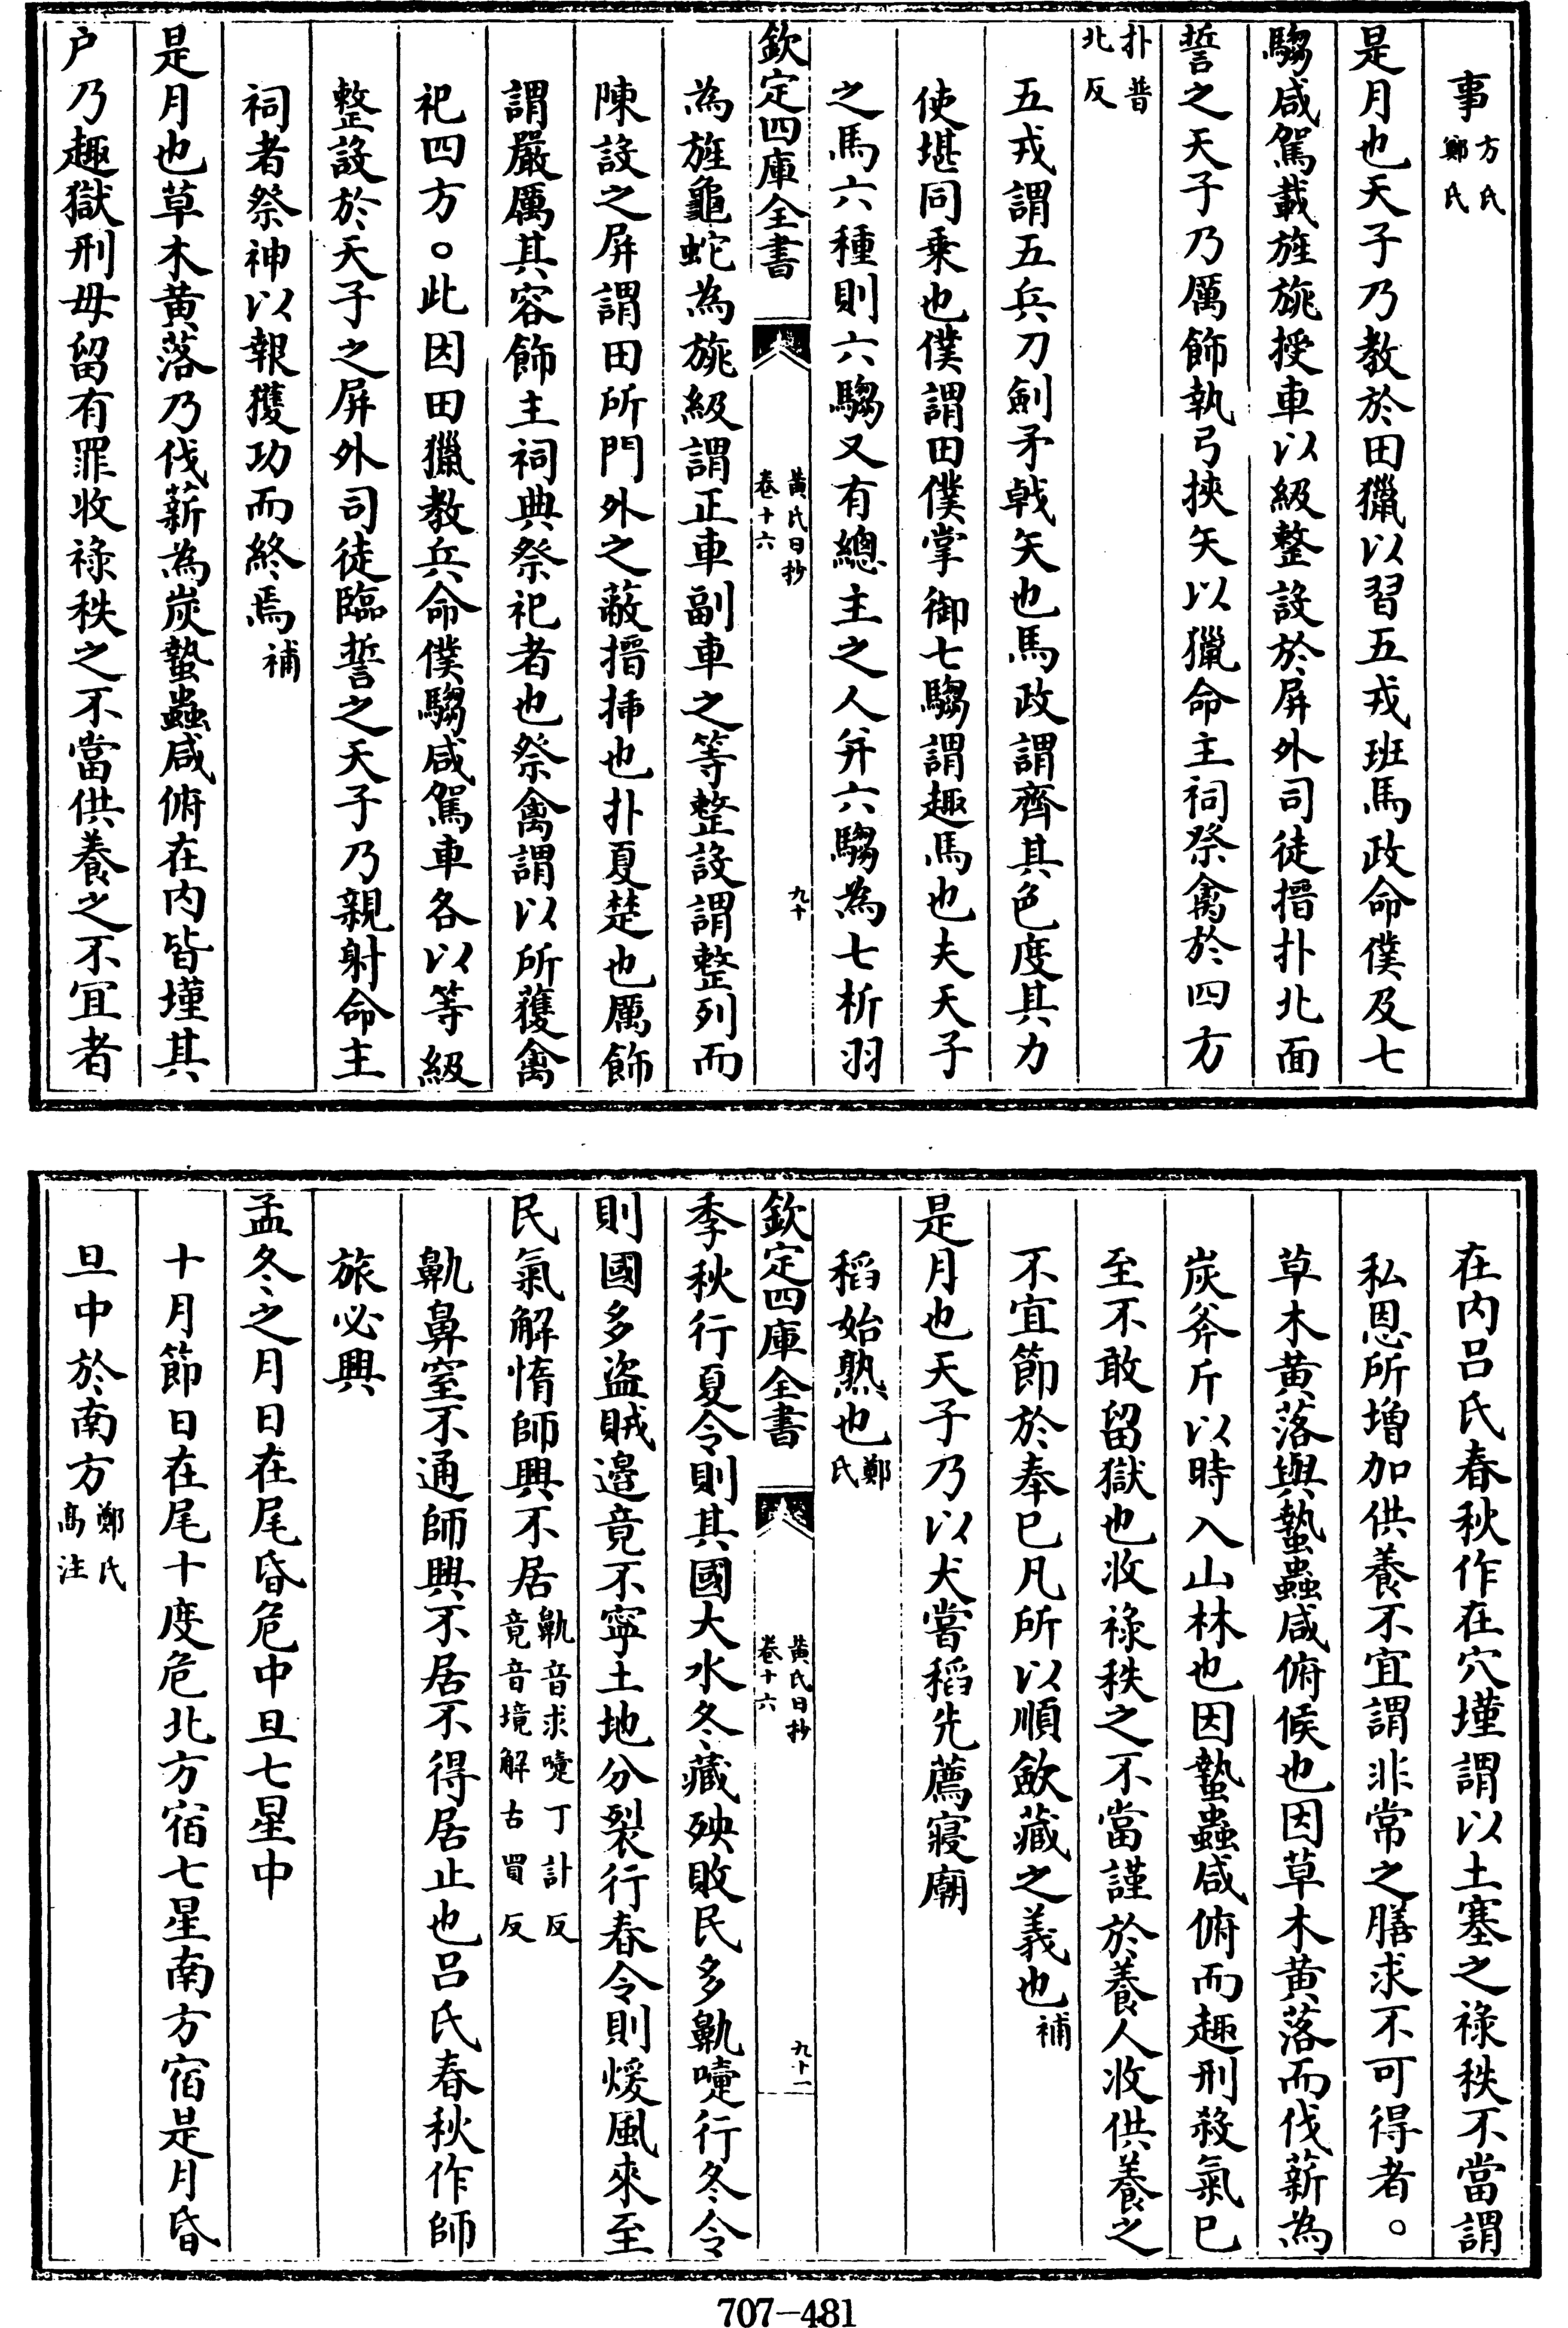 事方氏鄭氏
是月也天子乃教於田獵以習五戎班馬政命僕及七
騶咸駕載旌旐授車以級整設於屏外司徒搢扑北面
誓之天子乃厲飾執弓挾矢以獵命主祠祭禽於四方
扑普北反
五戎謂五兵刀劍矛戟矢也馬政謂齊其色度其力
使堪同乗也僕謂田僕掌御七騶謂趣馬也夫天子
之馬六種則六騶又有總主之人并六騶為七析羽
欽定四庫全書 黄氏日抄卷十六 九十
為旌龜蛇為旐級謂正車副車之等整設謂整列而
陳設之屏謂田所門外之蔽搢挿也扑夏楚也厲飾
謂嚴厲其容飾主祠典祭祀者也祭禽謂以所獲禽
祀四方○此因田獵教兵命僕騶咸駕車各以等級
整設於天子之屏外司徒臨誓之天子乃親射命主
祠者祭神以報獲功而終焉補
是月也草木黄落乃伐薪為炭蟄蟲咸俯在内皆墐其
户乃趣獄刑毋留有罪收祿秩之不當供養之不宜者
在内吕氏春秋作在穴墐謂以土塞之祿秩不當謂
私恩所增加供養不宜謂非常之膳求不可得者○
草木黄落與蟄蟲咸俯候也因草木黄落而伐薪為
炭斧斤以時入山林也因蟄蟲咸俯而趣刑殺氣已
至不敢留獄也收祿秩之不當謹於養人收供養之
不宜節於奉已凡所以順斂藏之義也補
是月也天子乃以犬嘗稻先薦寢廟
稻始熟也鄭氏
欽定四庫全書 黄氏日抄卷十六 九十一
季秋行夏令則其國大水冬藏殃敗民多鼽嚏行冬令
則國多盗賊邉竟不寧土地分裂行春令則煖風來至
民氣解惰師興不居鼽音求嚏丁計反竟音境解古買反
鼽鼻窒不通師興不居不得居止也吕氏春秋作師
旅必興
孟冬之月日在尾昏危中旦七星中
十月節日在尾十度危北方宿七星南方宿是月昏
旦中於南方鄭氏高注
707-481